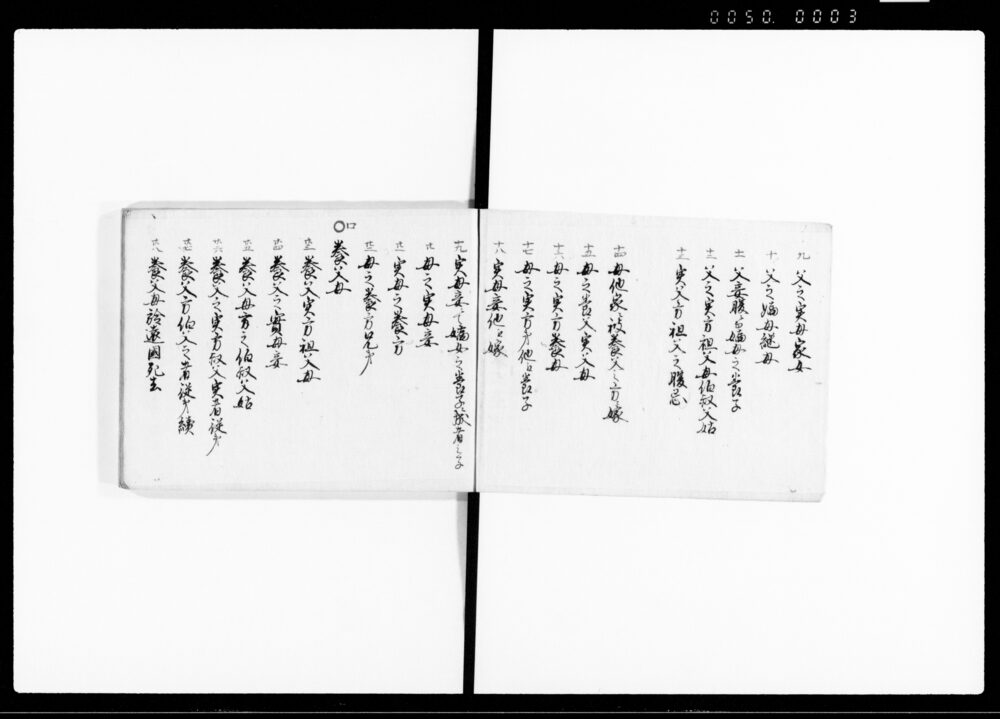 0050. 0003
九 父之実母家女
十 父之嫡母継母
十一 父妾腹ニ而嫡母之養子
十二 父之実方祖父母伯叔父姑
十三 実父方祖父之服忌
十四 母他家被養父之方嫁
十五 母之養父実父母
十六 母之実方養母
十七 母之実方弟他江養子
十八 実母妾他江嫁
十九 実母妾ニ而嫡女之養子
廿 母之実母妾
廿一 実母之養方
廿二 母之養方兄弟
〇口
養父母
廿三 養父実方祖父母
廿四 養父之實母妾
廿五 養父母方之伯叔父姑
廿六 養父之実方叔父実者従弟
廿七 養父方伯父之者従弟續
廿八 養父母於遠国死去